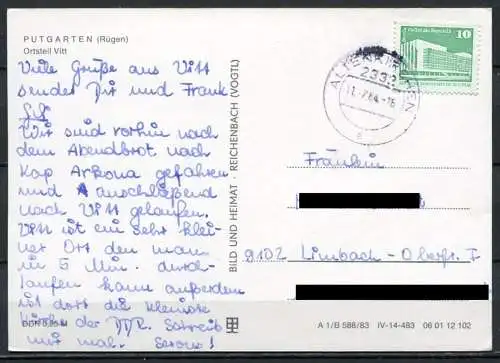 PUTGARTEN (Rügen)
Ortsteil Vitt
Viele Grüße aus Vitt
sendet Dir und Frank
Wir sind vorhin nach
dem Abendbrot nach
Kap Arkona gefahren
und anschließend
nach Vitt gelaufen.
Vitt ist ein sehr klei-
ner Ort den man
in 5 Min. durch-
laufen kann außerdem
ist dort die kleinste
Kirche der DDR. Schreib
mir mal.
BILD UND HEIMAT · REICHENBACH (VOGTL)
10
DDR
ALTENKIRCHEN
2332
Fräulein
9102 Limbach-Oberfr. I
A 1/B 588/83 IV-14-483 06 01 12 102